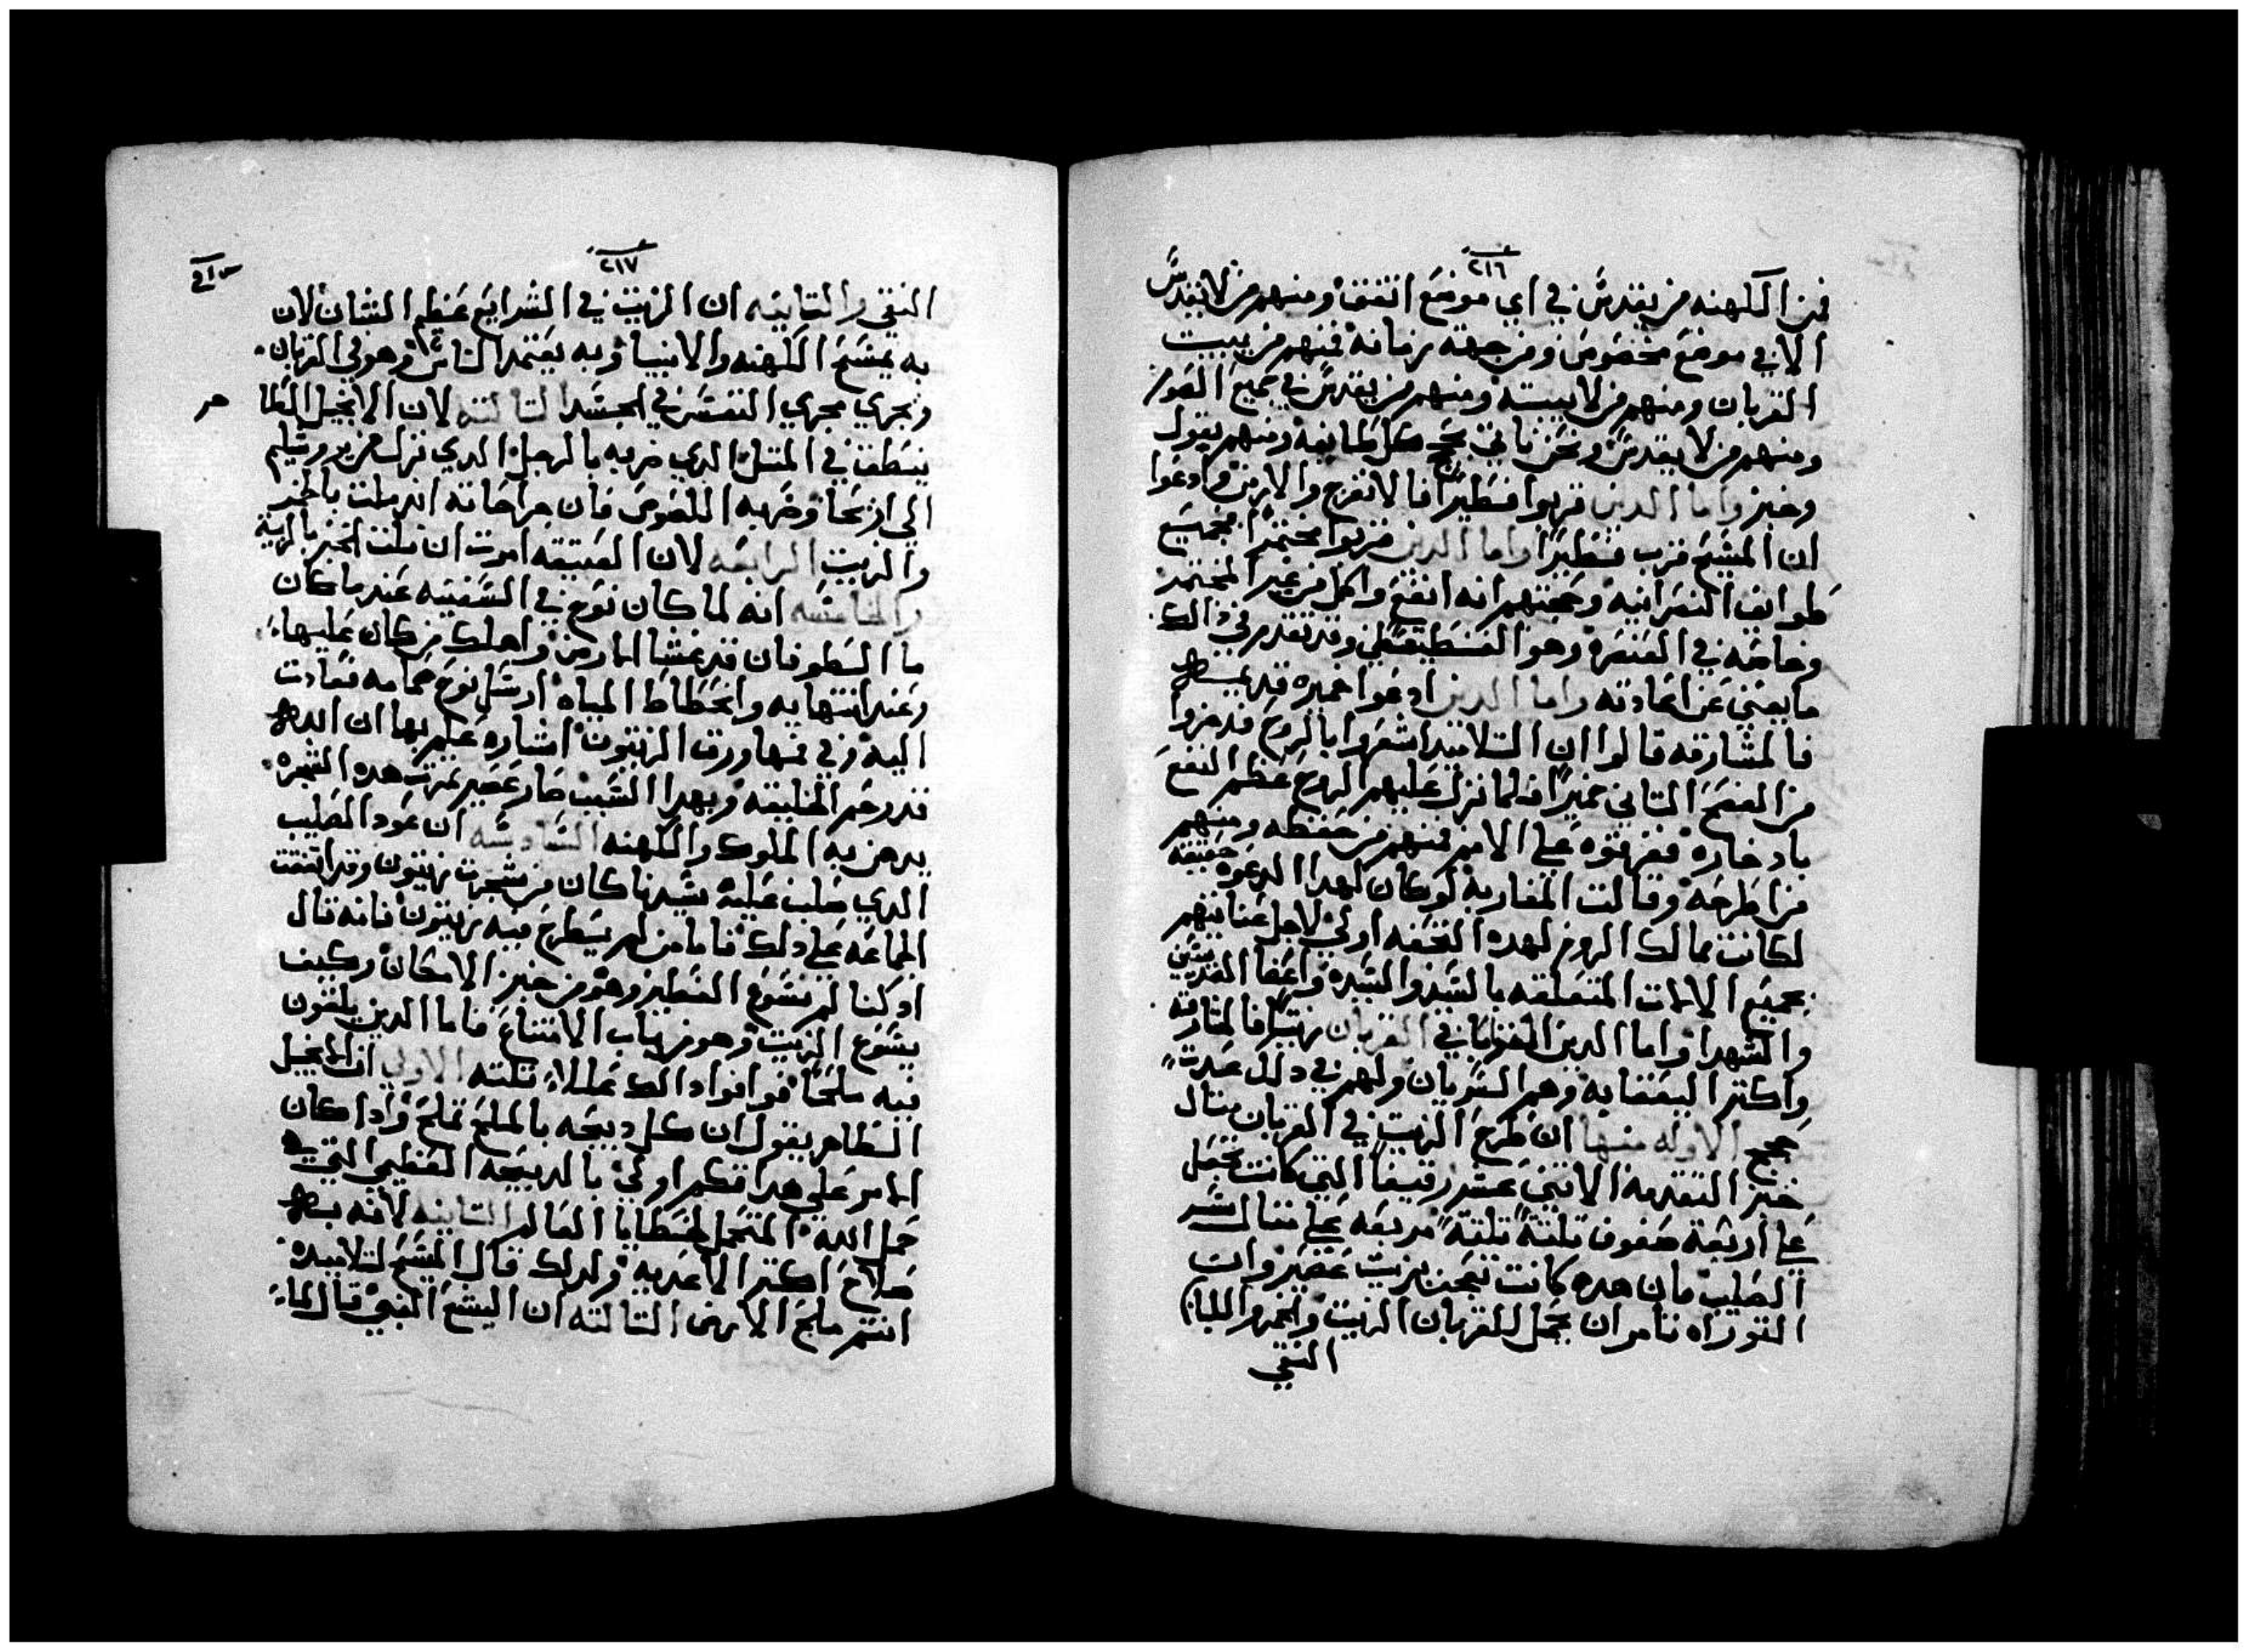 ٢١٦
فمن الكهنه من يقدس في اي موضع اتفق ومنهم من لا يقدس
الا في موضع مخصوص ومن جهته زمانه فمنهم من يبيت
القربان ومنهم من لا يبيته ومنهم من يقدس في جميع الصور
ومنهم من لا يقدس ونحن ناتي بحجج كل طايفه ومنهم يقول
وخبز واما الدين قربوا فطيرا فالافرنج والارمن وادعوا
ان المسيح قرب فطيرا واما الدين قربوا مختمرا فجميع
طوايف النصرانيه وحجتهم انه انفع واكمل من غير المختمر
وخاصه في العنصره وهو القسطيقطي وقد تقدم في دالك
ما يغني عن اعادته واما الدين ادعوا خميره قديمه
فالمشارقه قالوا ان التلاميد اشعروا بالروح فدخروا
من الفصح التاني خميرا فلما نزل عليهم الروح عظم النفع
بادخاره ففرقوه على الامم فمنهم من حفظه ومنهم
من اطرحه وقالت المغاربه لو كان لهدا الدعوه حقيقه
لكانت ممالك الروم لهده التحفه اولي لاجل عنايتهم
بجميع الالات المتعلقه بالسيد والسيده واعضا القديسين
والشهدا واما الدين القوا في القربان زيتا فالمشارقه
واكتر اليعقابه وهم السريان ولهم في دلك عدت
حجج الاوله منها ان طرح الزيت في القربان متال
خبز التقدمه الاتني عشر رقيقا التي كانت تجعل
على اربعة صفوف تلتة تلتة مربعه على متال شر
الصليب فان هده كانت تعجن بزيت عصير وان
التوراه تامر ان يجمل للقربان الزيت والخمر واللبان
النقي
٢١٧
النقي والتانيه ان الزيت في الشرايع عظيم الشان لان
به يمسح الكهنه والانبيا وبه يعتمد الناس وهو في القربان
ويجري مجري النفس في الجسد التالته لان الانجيل الطا
هر
ينطق في المتل الدي ضربه بالرجل الدي نزل من يروشليم
الي اريحا وضربه اللصوص فان جراحاته اندملت بالخمر
والزيت الرابعه لان العتيقه امرت ان تلت الخبز بالزيت
والخامسه انه لما كان نوح في السفينه عند ما كان
ما الطوفان قد غشا الارض واهلك من كان عليها
وعند انتهايه وانحطاط المياه ارسل نوح حمامه فعادت
اليه وفي فمها ورق الزيتون اشاره علم بها ان الله
قد رحم الخليقه وبهدا السبب صار عصير تمرت هده الشجره
يدهن به الملوك والكهنه السادسه ان عود الصليب
الدي صلب عليه سيدنا كان من شجرت زيتون وقد اتفقت
الجماعه على دلك فاما من لم يطرح فيه زيتون فانه قال
اد كنا لم نسوغ الفطير وهو من خبز الامكان وكيف
يسوغ الزيت وهو من باب الامتناع فاما الدين يلقون
فيه ملحا فوافوا دالك علل تلته الاولي ان الانجيل
الطاهر يقول ان كل دبيحه بالملح تملح وادا كان
الامر على هدا فكم اولي بالدبيحه العظمي التي هي
حمل الله المتحمل لخطايا العالم التانيه لانه به
صلاح اكتر الاغديه ولدلك قال المسيح لتلاميده
انتم ملح الارض التالته ان اليشع النبي قال لما